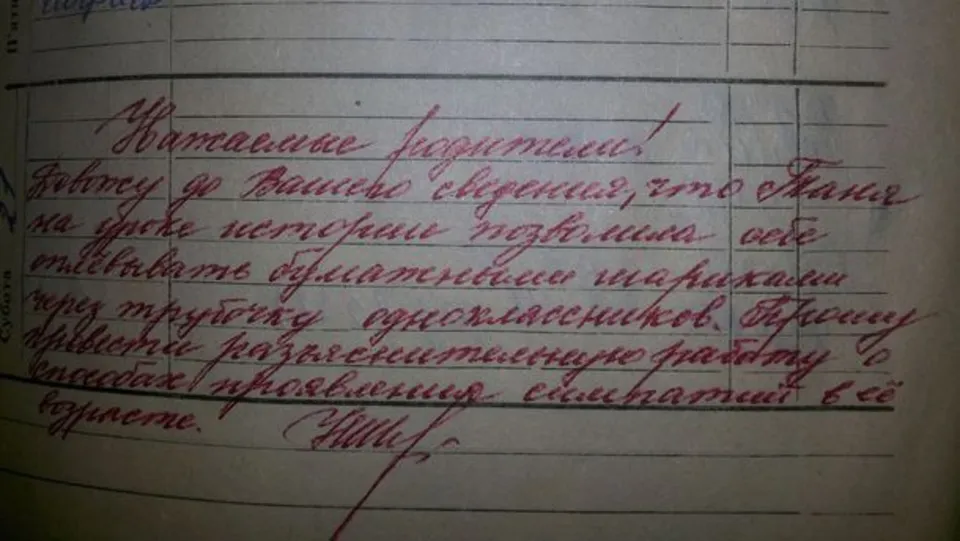 П'ятн
Уважаемые родители!
Довожу до Вашего сведения, что Таня
на уроке истории позволила себе
оплёвывать бумажными шариками
через трубочку одноклассников. Прошу
провести разъяснительную работу о
способах проявления симпатий в её
возрасте.
Субота